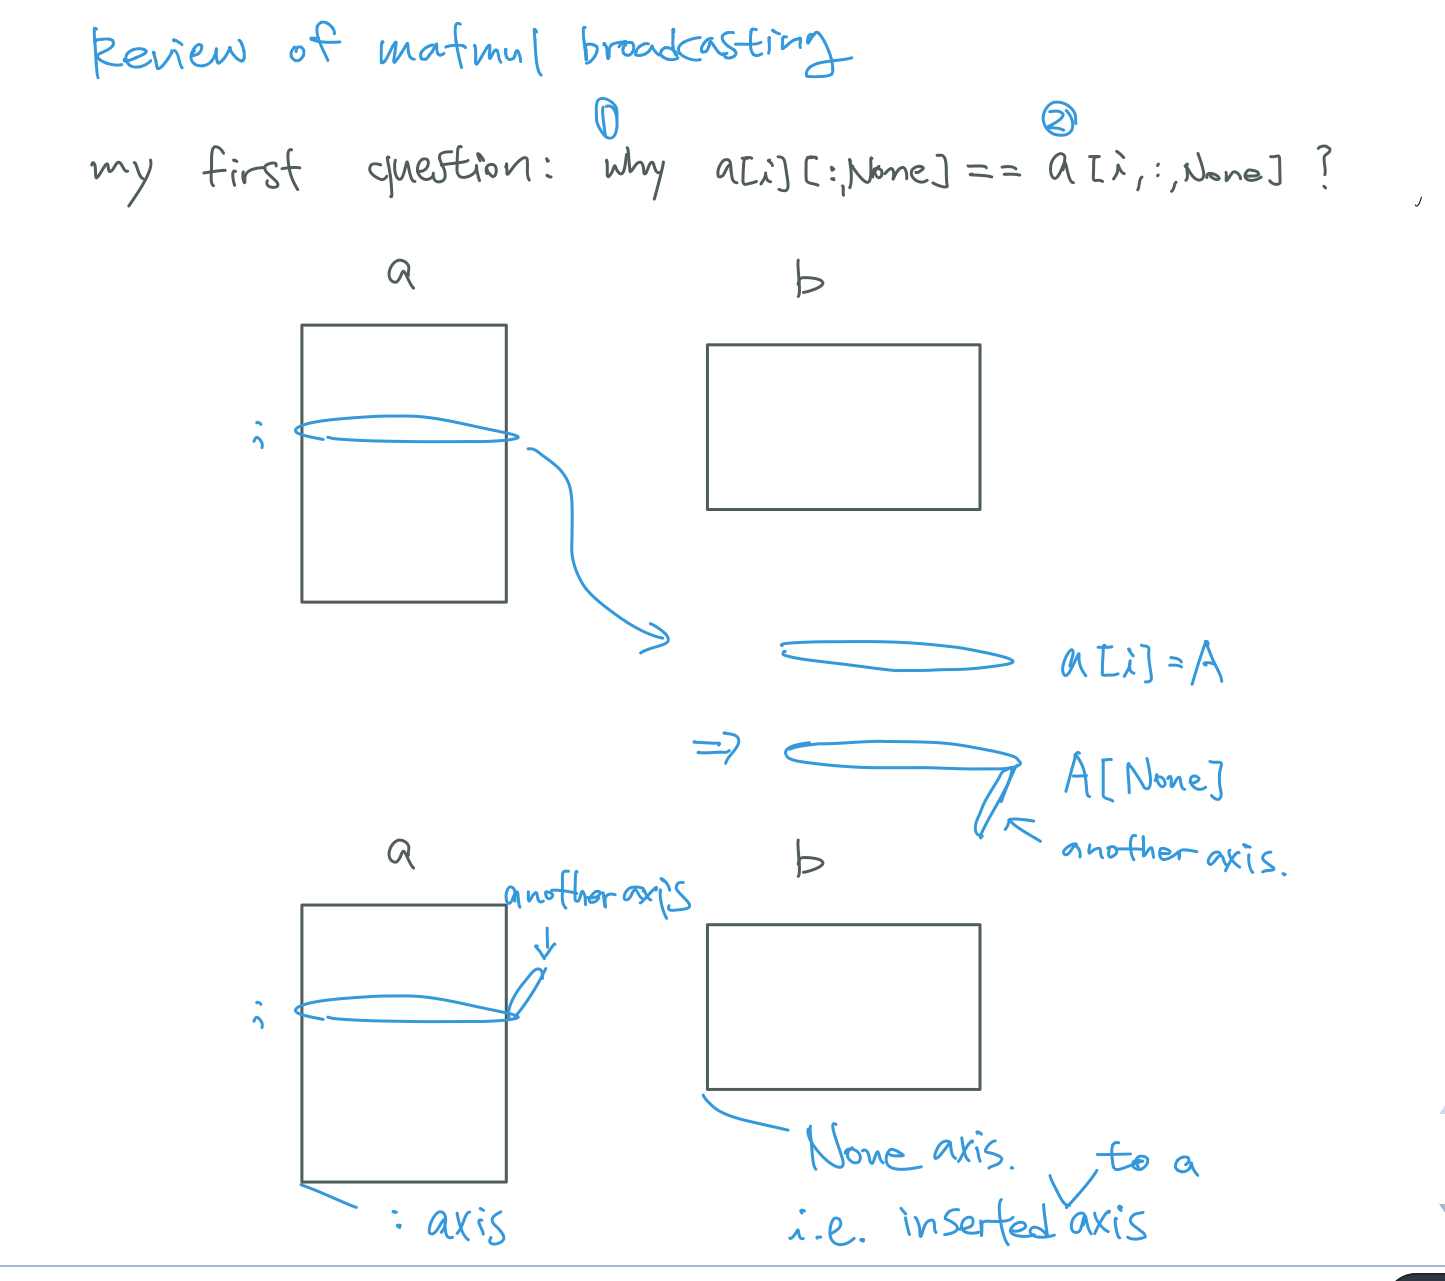 Review of matmul broadcasting
① ②
my first question: why a[i][:,None] == a[i,:,None] ?
a b
i
a[i]=A
⇒ A[None]
another axis.
a b
another axis
i
None axis.
: axis
i.e. inserted to a axis